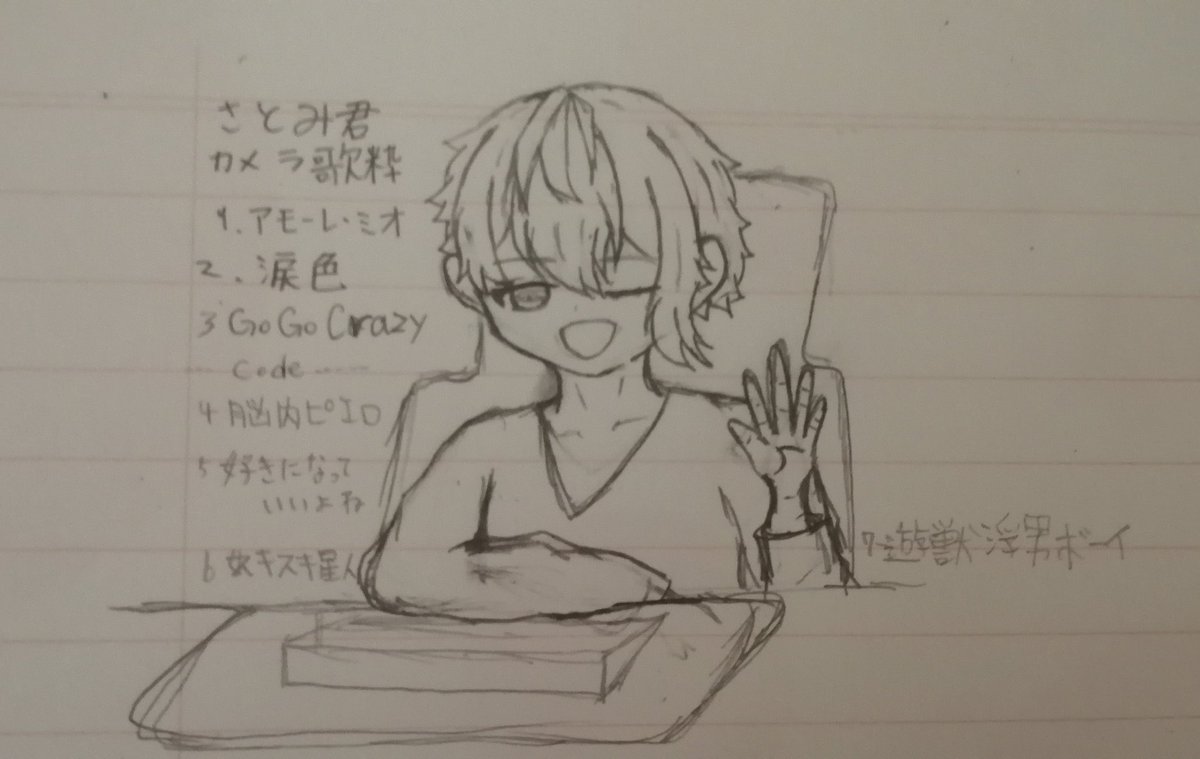 さとみ君
カメラ歌粋
1.アモーレ・ミオ
2.涙色
3 GoGo Crazy
Code……
4 脳内ピエロ
5 好きになって
いいよね
6 好キスキ星人
7 遊獣浮男ボーイ